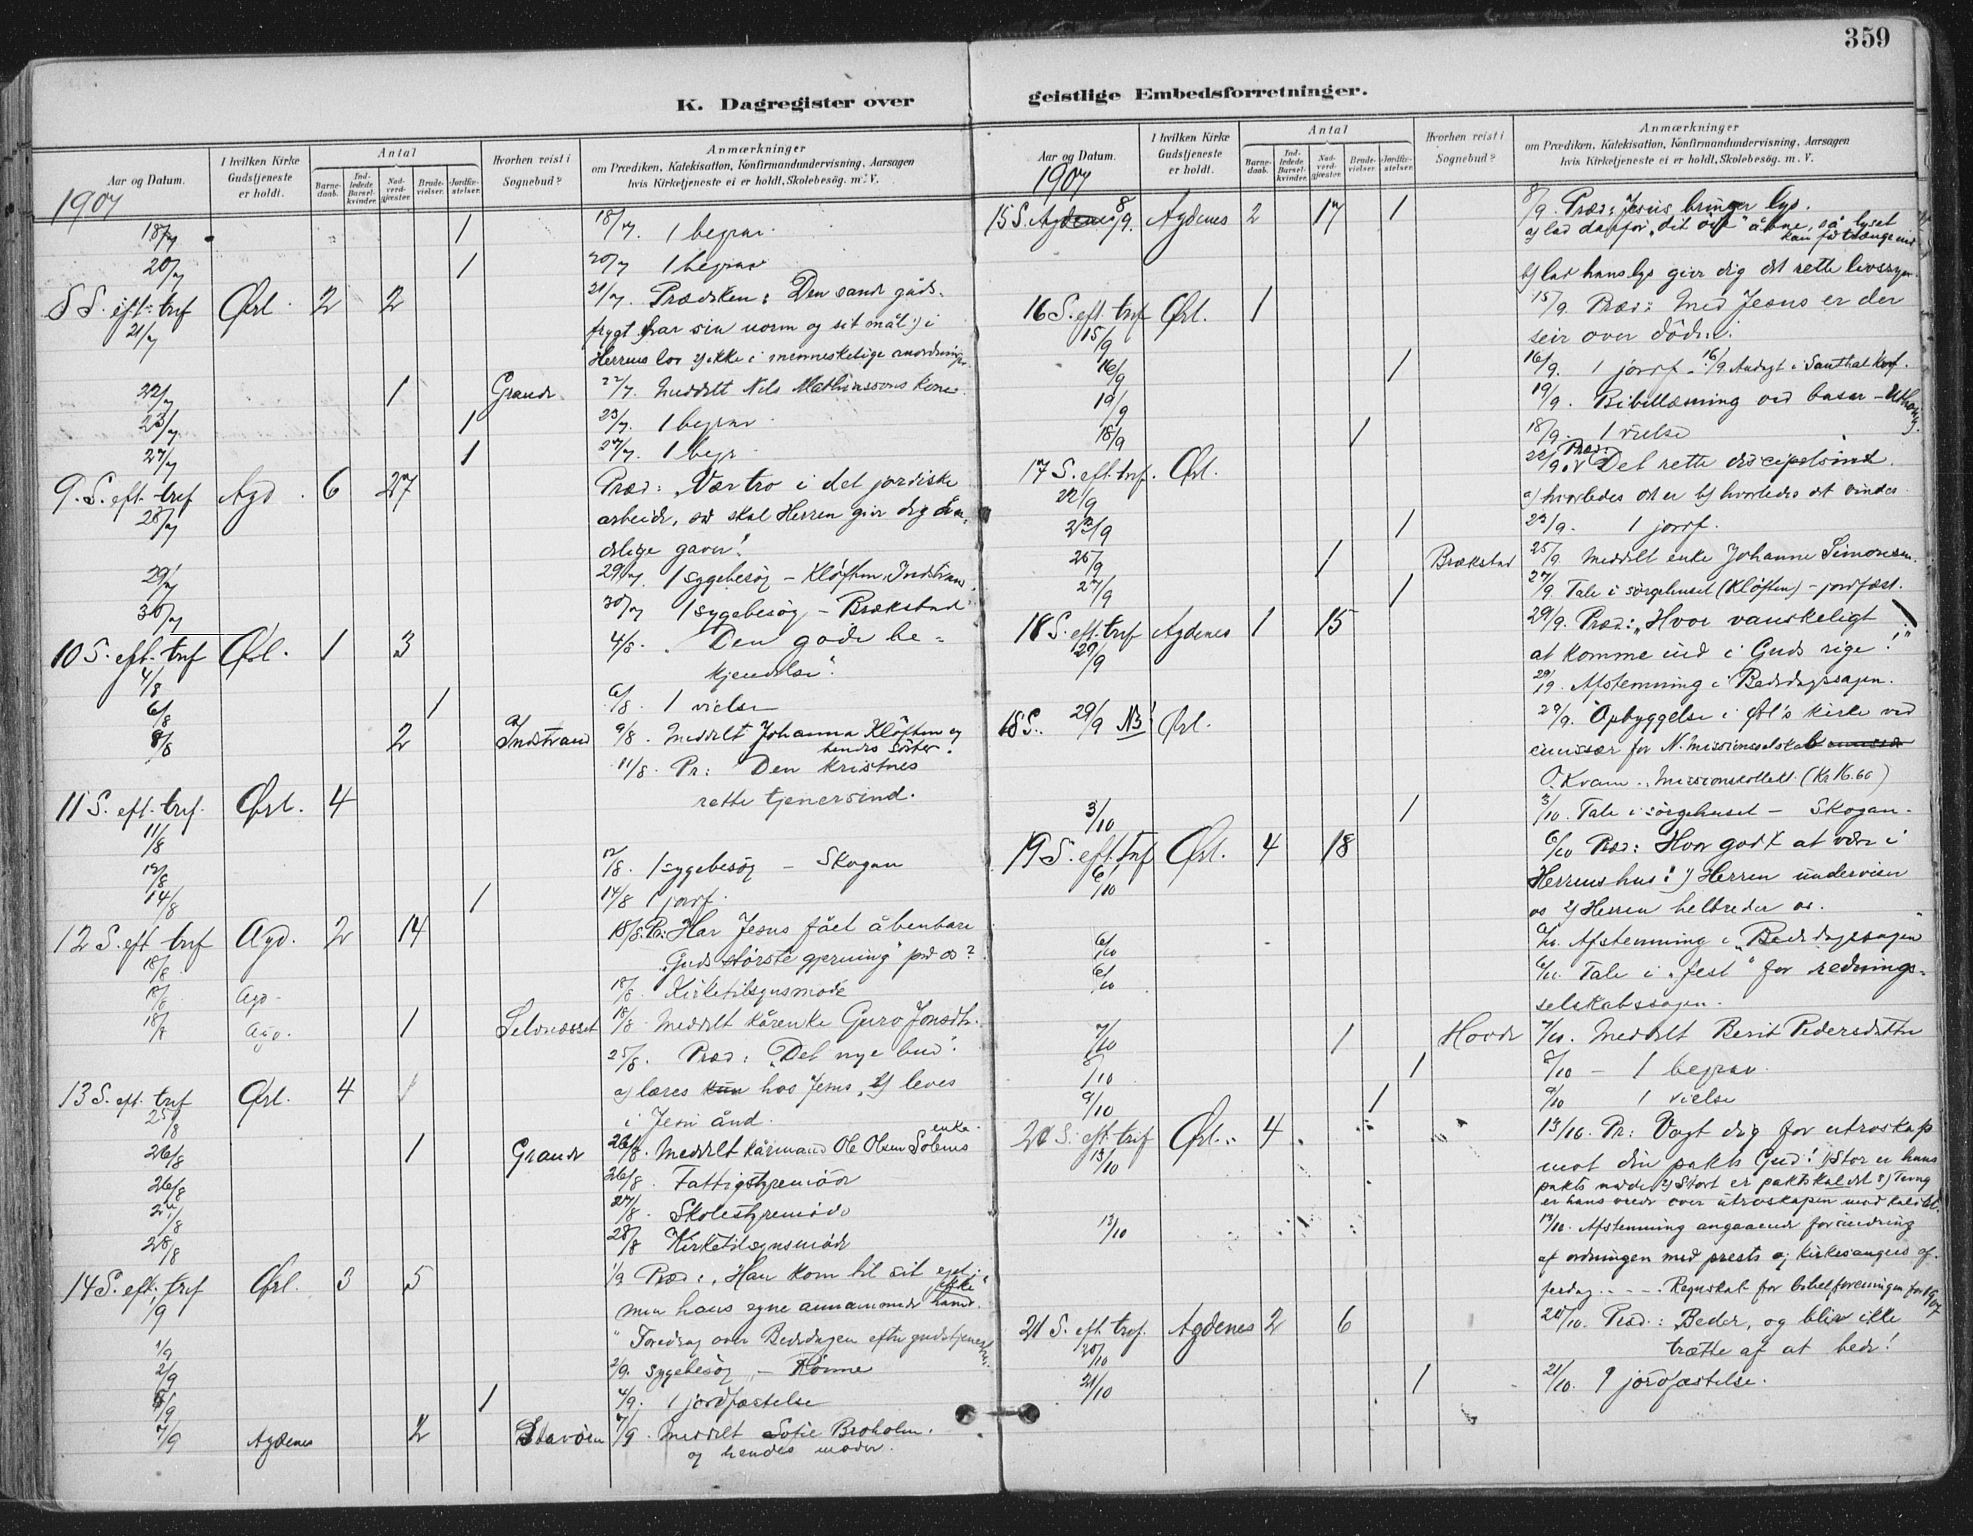 359
K. Dagregister over geistlige Embedsforretninger.
Aar og Datum.
I hvilken Kirke Gudstjeneste er holdt.
Antal
Barnedaab.
Indledede Barselkvinder.
Nadverdgjæster.
Brudevielser.
Jordfæstelser.
Hvorhen reist i Sognebud?
Anmærkninger
om Prædiken, Katekisation, Konfirmandundervisning, Aarsagen
hvis Kirketjeneste ei er holdt, Skolebesøg. m. V.
1907
18/7 1 18/7. 1 begrav.
20/7 1 20/7 1 begrav
8 S. eft. trif Ørl. 2 2 21/7. Prædiken: Den sande guds-
21/7 frygt har sin norm og sit mål 1) i
Herrens lov 2) ikke i menneskelige anordninger.
22/7 1 Grande 22/7. Meddelt Nils Mathinssons kone.
23/7. 1 23/7. 1 begrav
27/7 1 27/7. 1 begr.
9. S. eft. trif Agd. 6 27 Præd: "Vær tro i det jordiske
28/7 arbeide, så skal Herren give dig ån-
delige gaver".
29/7 29/7. 1 sygebesøg – Kløften, Indstrand
30/7 30/7 1 sygebesøg – Brækstad
10 S. eft. trif Ørl. 1 3 4/8. "Den gode be-
4/8 kjendelse".
6/8 1 6/8. 1 vielse
8/8 2 Indstrand 9/8. Meddelt Johanna Kløften og
hendes søster.
11/8. Pr: Den kristnes
11 S. eft. trif. Ørl. 4 rette tjenersind.
11/8
12/8 12/8. 1 sygebesøg – Skogan
14/8 1 14/8 1 jordf.
12 S. eft trif Agd. 2 14 18/8. Pr: Har Jesus fået åbenbare
18/8 "Guds største gjerning" på os?
18/8 Agd. 18/8. Kirketilsynsmøde
18/8 Agd. 1 Selvnæsset 18/8. Meddelt kårenke Guro Jonsdtr.
25/8. Præd: "Det nye bud".
13 S. eft. trif Ørl. 4 1 a) læres kun hos Jesus, 2) leves
25/8 i Jesu ånd.
26/8 1 Grande 26/8. Meddelt kårmand Ole Olsen Solems enke.
26/8 26/8. Fattigstyremøde
27/8 27/8. Skolestyremøde
28/8 28/8 Kirketilsynsmøde
14 S. eft. trif Ørl. 3 5 1/9 Præd: "Han kom til sit eget;
1/9 men hans egne annammede ham ikke".
1/9 " Foredrag over Bededagen efter gudstjenesten.
2/9 2/9. Sygebesøg – Rønne
4/9 1 4/9. 1 jordfæstelse
7/9 Agdenes 2 Stavøen 7/9. Meddelt Sofie Broholm.
og hendes moder.
Aar og Datum.
I hvilken Kirke Gudstjeneste er holdt.
Antal
Barnedaab.
Indledede Barselkvinder.
Nadverdgjæster.
Brudevielser.
Jordfæstelser.
Hvorhen reist i Sognebud?
Anmærkninger
om Prædiken, Katekisation, Konfirmandundervisning, Aarsagen
hvis Kirketjeneste ei er holdt, Skolebesøg. m. V.
1907
15 S. Agdenes 8/9. Agdenes 2 17 1 8/9. Præd: Jesus bringer lys.
a) lad derfor "dit øie" åbne, så lyset
kan få trænge ind
b) lad hans lys give dig det rette livssyn.
16 S. eft. trif Ørl. 1 15/9. Præd: Med Jesus er der
15/9 seir over døden.
16/9 1 16/9. 1 jordf. 16/9. Andagt i Santhalkvf.
19/9 19/9. Bibellæsning ved basar – Uthaug.
18/9 1 18/9. 1 vielse
17 S. eft. trif. Ørl. 22/9. Præd: Det rette discipelsind.
22/9 a) hvorledes det er b) hvorledes det vindes.
23/9 1 23/9. 1 jordf.
25/9 1 Brækstad 25/9. Meddelt enke Johanne Simonsen.
27/9 1 27/9. Tale i sørgehuset (Kløften) – jordfæst.
18 S. eft. trif Agdenes 1 15 29/9. Præd: "Hvor vanskeligt
29/9 at komme ind i Guds rige!"
29/9. Afstemning i Bededagssagen.
18 S. 29/9 NB! Ørl. 29/9. Opbyggelse i Ørl's kirke ved
emissær for N. Missionsselskab
O. Kvam. Missionskollekt. (Kr 16.60)
3/10 1 3/10. Tale i sørgehuset – Skogan.
19 S. eft. trif Ørl. 4 18 6/10 Præd: Hvor godt at være i
6/10 Herrens hus! 1) Herren underviser
os 2) Herren helbreder os.
6/10 6/10. Afstemning i "Bededagssagen"
6/10 6/10. Tale i "fest" for rednings-
selskabssagen.
7/10 1 Hovde 7/10. Meddelt Berit Pedersdatter
8/10 1 8/10 – 1 begrav.
9/10 1 9/10 1 vielse
20 S. eft. trif Ørl. 4 13/10. Pr: Vogt dig for utroskap
13/10 mot din pakts Gud! 1) Stor er hans
pakts nåde 2) Stort er paktskaldet 3) Tung
er hans vrede over utroskapen mod kaldet.
13/10 13/10. Afstemning angaaende forandring
af ordningen med prests og kirkesangers of-
ferdag. – – – Regnskab for bibelforeningen for 1907
21 S. eft. trif. Agdenes 2 6 20/10. Præd: Beder, og bliv ikke
20/10 trætte af at bede!
21/10 1 21/10. 1 jordfæstelse.